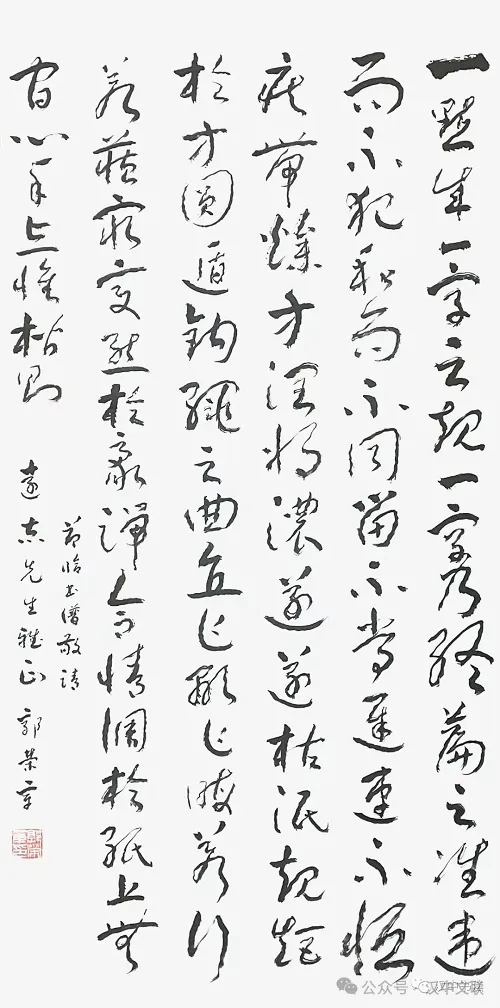 一點成一字之規一字乃終篇之準違
而不犯和而不同留不常遲遣不恒
疾帶燥方潤將濃遂遂枯泯規矩
於方圓遁鉤繩之曲直乍顯乍晦若行
若藏窮變態於豪端合情調於紙上無
間心手忘懷楷則
節臨書譜敬請
遠志先生雅正 郭榮章
公众号 · 汉中文联